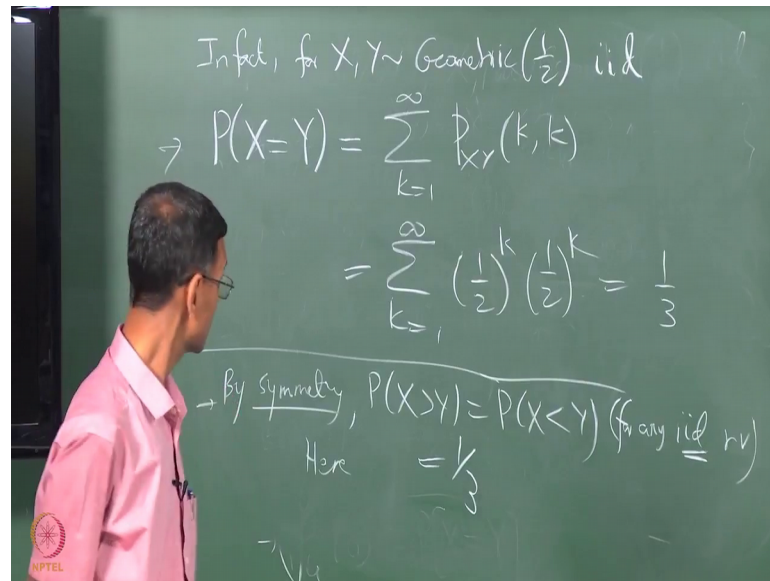 In fact, for X, Y ~ Geometric (1/2) iid
→ P(X=Y) = ∑_{k=1}^{∞} P_{XY}(k, k)
= ∑_{k=1}^{∞} (1/2)^k (1/2)^k = 1/3
→ By symmetry, P(X>Y) = P(X<Y) (for any iid rv)
Here = 1/3
NPTEL